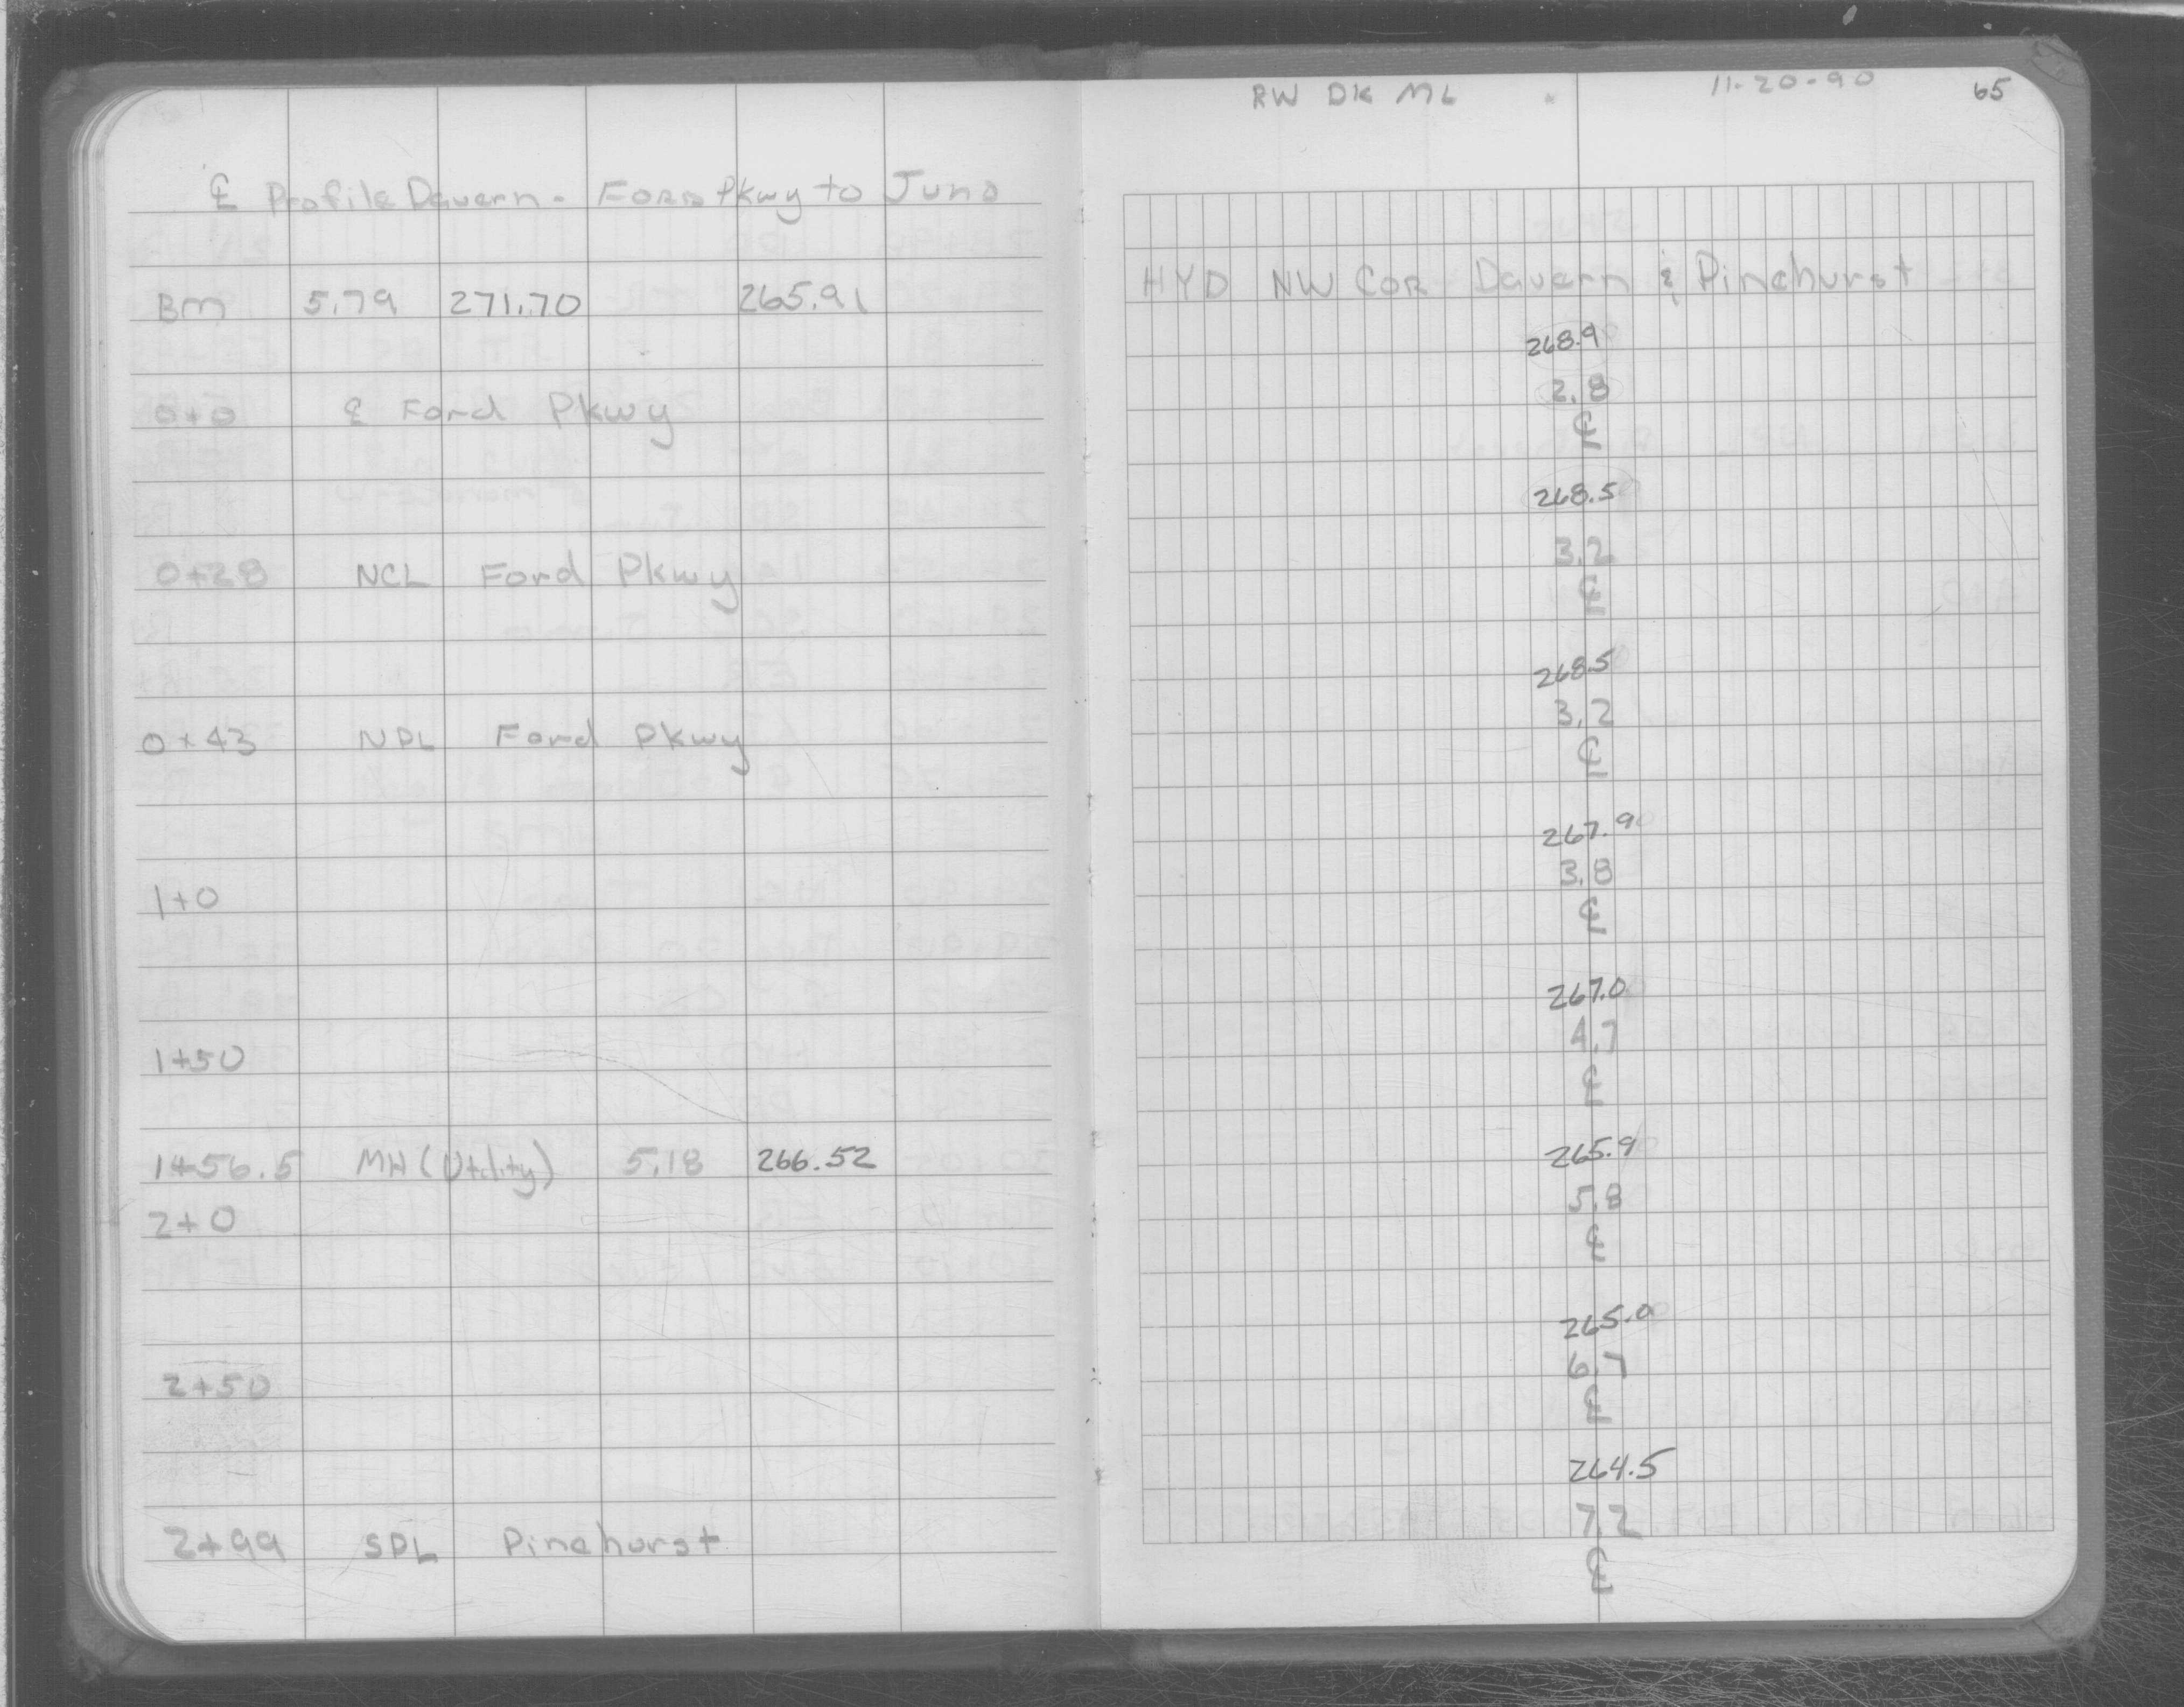 ℄ Profile Davern - Ford Pkwy to Juno
BM 5.79 271.70 265.91
0+0 ℄ Ford Pkwy
0+28 NCL Ford Pkwy
0+43 NPL Ford Pkwy
1+0
1+50
1+56.5 MH (Utility) 5.18 266.52
2+0
2+50
2+99 SPL Pinehurst
RW DK ML 11-20-90 65
HYD NW COR Davern & Pinehurst
268.9
2.8
℄
268.5
3.2
℄
268.5
3.2
℄
267.9
3.8
℄
267.0
4.7
℄
265.9
5.8
℄
265.0
6.7
℄
264.5
7.2
℄